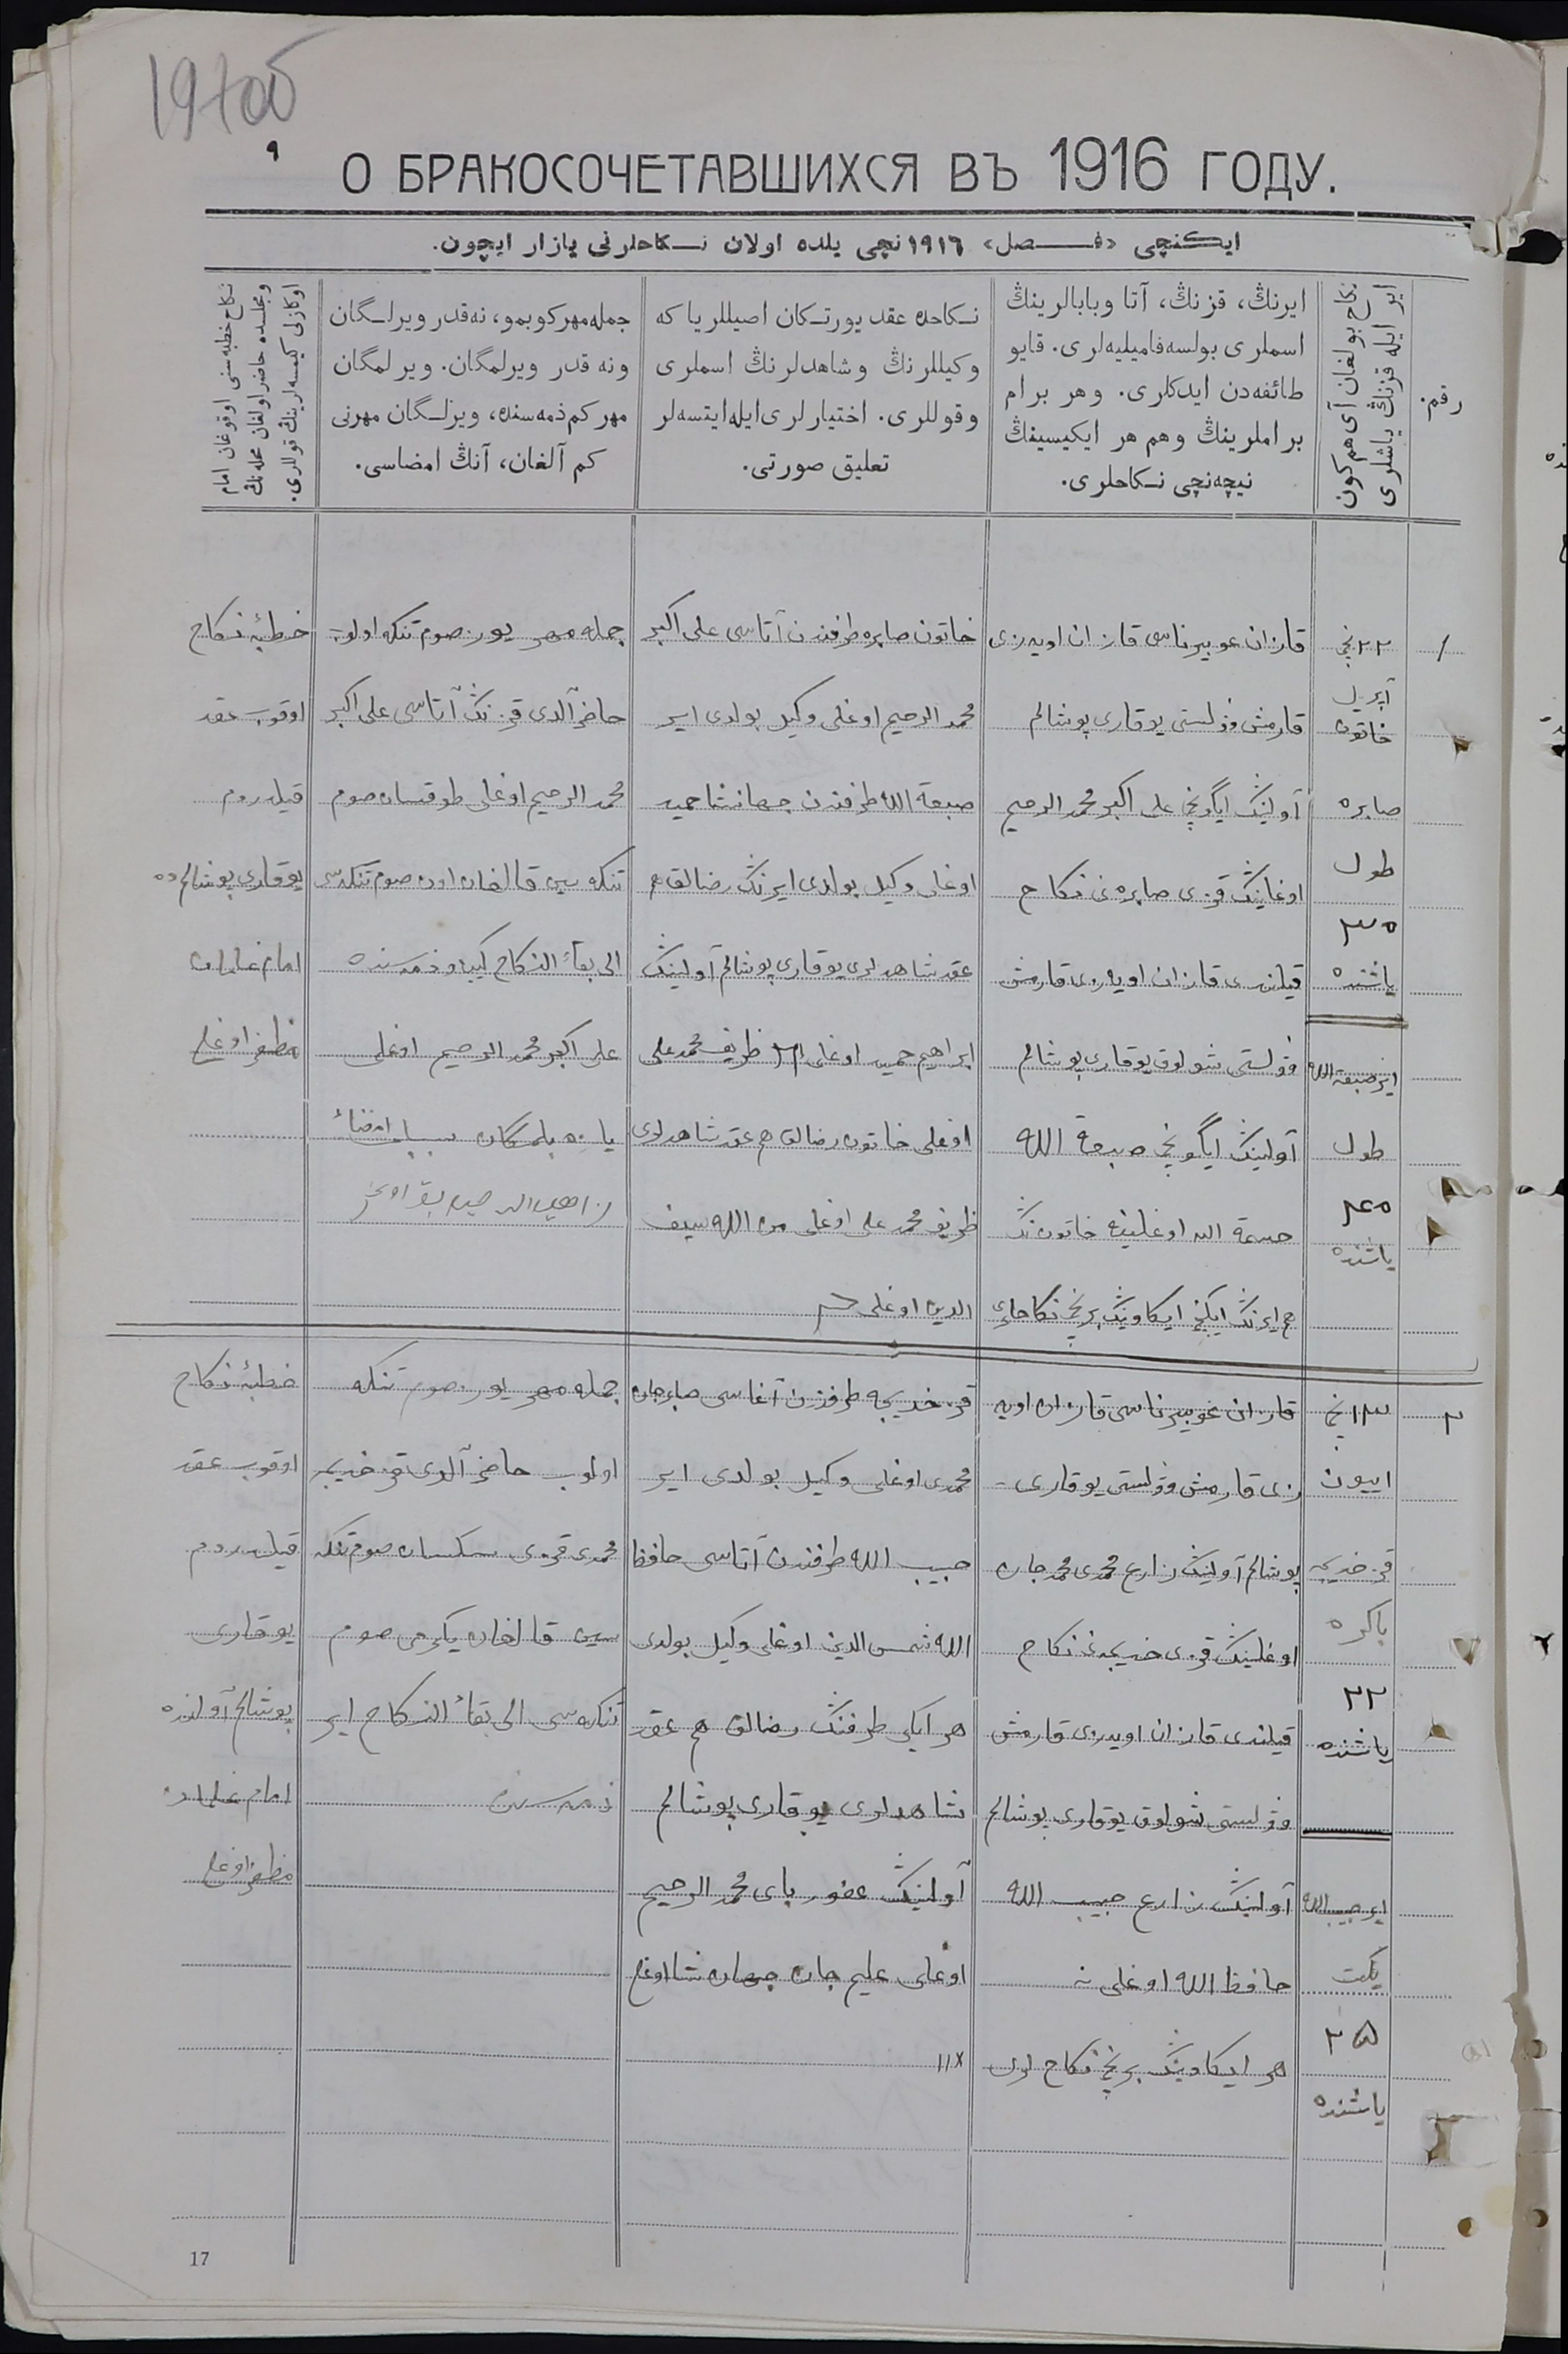 197об
٩
О БРАКОСОЧЕТАВШИХСЯ ВЪ 1916 ГОДУ.
ایکنچی «فصل» ١٩١٦ نچی یلده اولان نکاحلرنی یازار ایچون.
رقم.
نکاح بولغان آی هم کون
ایر ایله قزنڭ یاشلری
ایرنڭ، قزنڭ، آتا وبابالرینڭ
اسملری بولسه فامیلیه‌لری. قایو
طائفه‌دن ایدکلری. وهر برام
براملرینڭ وهم هر ایکیسینڭ
نیچه‌نچی نکاحلری.
نکاحده عقد یورتکان اصیللر یا که
وکیللرنڭ وشاهدلرنڭ اسملری
وقوللری. اختیارلری ایله ایتسه‌لر
تعلیق صورتی.
جمله مهر کوبمو، نه‌قدر ویرلگان
ونه قدر ویرلمگان. ویرلمگان
مهر کم ذمه‌سنده، ویرلگان مهرنی
کم آلغان، آنڭ امضاسی.
نکاح خطبه‌سنی اوقوغان امام
ومجلسده حاضر اولغان محله‌نڭ
اوکازلی کیمسه‌لرینڭ قوللری.
١
٢٢ نچی
آپریل
خاتون
صابره
طول
٣٥
یاشنده
ایر صبغة الله
طول
٤٥
یاشنده
قازان غوبیرناسی قازان اویه‌زی
قارمش وولستی یوقاری پوشالم
آولینڭ ایگونچی علی اکبر محمد الرحیم
اوغلینڭ قزی صابره نی نکاح
قیلندی قازان اویه‌زی قارمش
وولستی شولوق یوقاری پوشالم
آولینڭ ایگونچی صبغة الله
اوغلینه خاتون‌نڭ
هم ایرنڭ ایکنچی ایکاوینڭ برنچی نکاحلری
خاتون صابره طرفندن آتاسی علی اکبر
محمد الرحیم اوغلی وکیل بولدی ایر
صبغة الله طرفندن جهانشا حمید
اوغلی وکیل بولدی ایرنڭ رضالق هم
عقد شاهدلری یوقاری پوشالم آولینڭ
ابراهیم حمید اوغلی ظریف محمد علی
اوغلی خاتون رضالق هم عقد شاهدلری
ظریف محمد علی اوغلی من الله سیف
الدین اوغلی
جمله مهر یوز صوم تنکه اولوب
حاضر آلدی قزنڭ آتاسی علی اکبر
محمد الرحیم اوغلی طوقسان صوم
تنکه سین قالغان اون صوم تنکه‌سی
الی بقاء النکاح کیاو ذمه‌سنده
علی اکبر محمد الرحیم اوغلی
یازه بلمگان سبابلی امضاء
خطبهٔ نکاح
اوقوب عقد
قیلدردم
یوقاری پوشالم‌ده
امام
مظفر اوغلی
٢
١٣ نچی
اییون
قز خدیجه
باکره
٢٢
یاشنده
ایر حبیب الله
یکت
٢٥
یاشنده
قازان غوبیرناسی قازان اویه
زی قارمش وولستی یوقاری
پوشالم آولینڭ زارع محمدی محمدجان
اوغلینڭ قزی خدیجه‌نی نکاح
قیلندی قازان اویه‌زی قارمش
وولستی شولوق یوقاری پوشالم
آولینڭ زارع حبیب الله
حافظ الله اوغلی نه
هر ایکاوینڭ برنچی نکاح لری
قز خدیجه طرفندن آغاسی صابرجان
محمدی اوغلی وکیل بولدی ایر
حبیب الله طرفندن آتاسی حافظ
الله شمس الدین اوغلی وکیل بولدی
هر ایکی طرفنڭ رضالق هم عقد
شاهدلری یوقاری پوشالم
آولینڭ غفور بای محمد الرحیم
اوغلی علیم جان جهان شا اوغلی
جمله مهر یوز صوم تنکه
اولوب حاضر آلدی قز خدیجه
محمدی قزی سکسان صوم تنکه
سین قالغان یکرمی صوم
تنکه‌سی الی بقاء النکاح ایر
ذمه‌سنده
خطبهٔ نکاح
اوقوب عقد
قیلدردم
یوقاری
پوشالم آولنده
امام
مظفر اوغلی
17